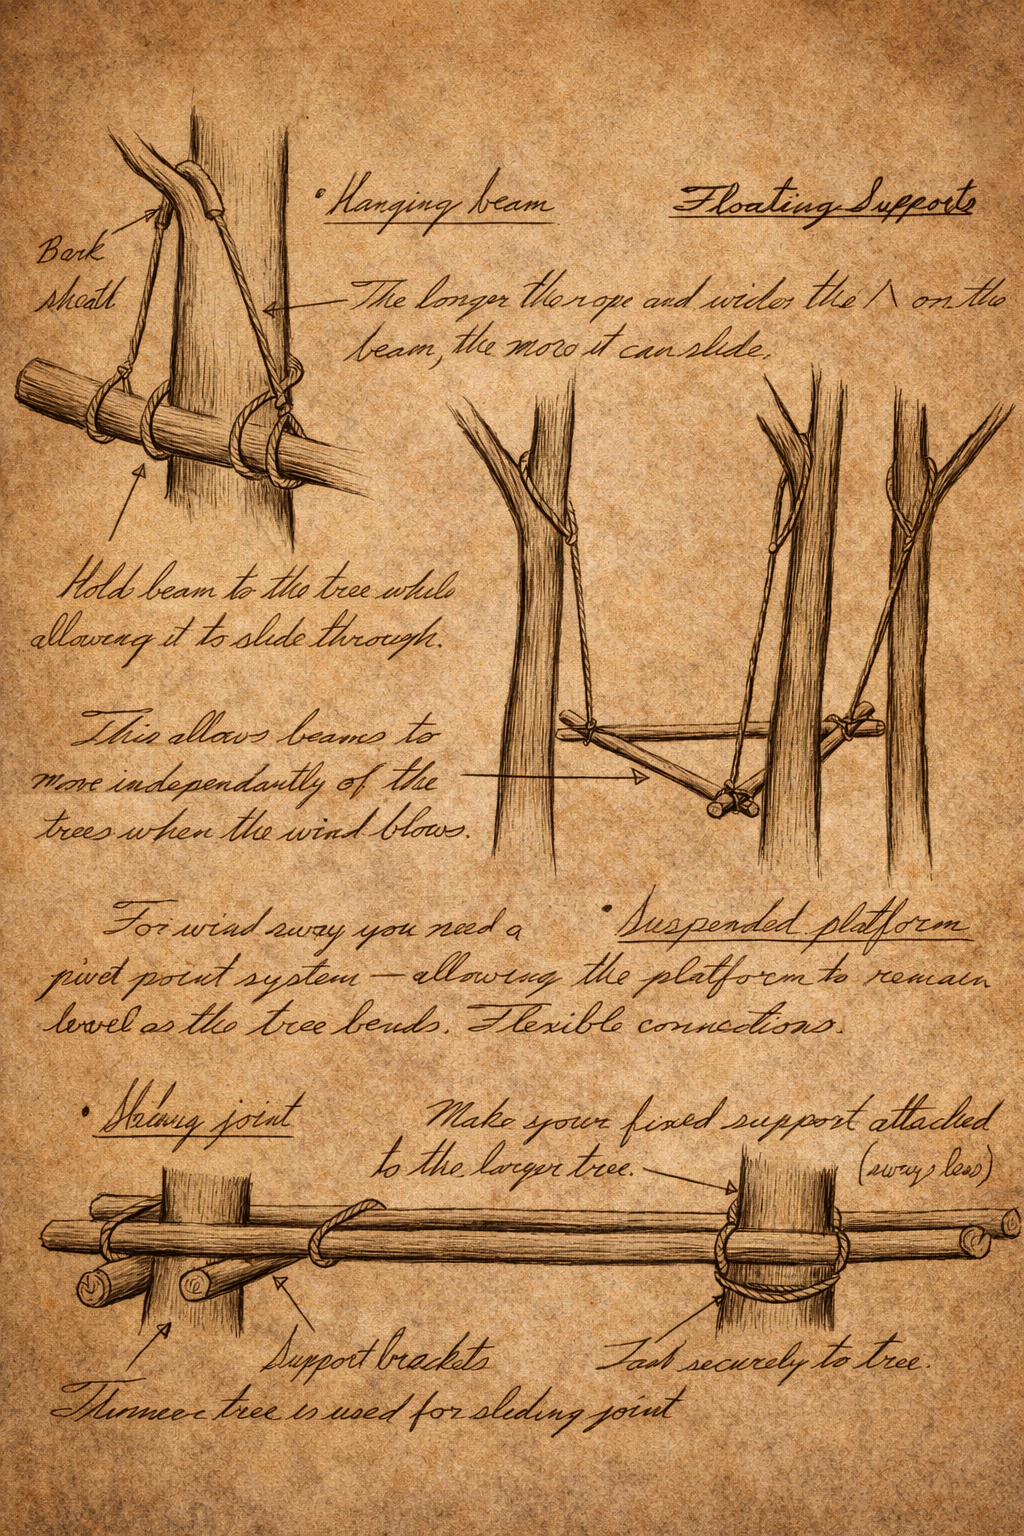 Floating Supports
• Hanging beam
Bark
sheath
The longer the rope and wider the /\ on the
beam, the more it can slide.
Hold beam to the tree while
allowing it to slide through.
This allows beams to
move independantly of the
trees when the wind blows.
• Suspended platform
For wind sway you need a
pivot point system — allowing the platform to remain
level as the tree bends. Flexible connections.
• joint
Make your fixed support attached
to the larger tree.
(sways less)
Support brackets
securely to tree.
tree is used for sliding joint